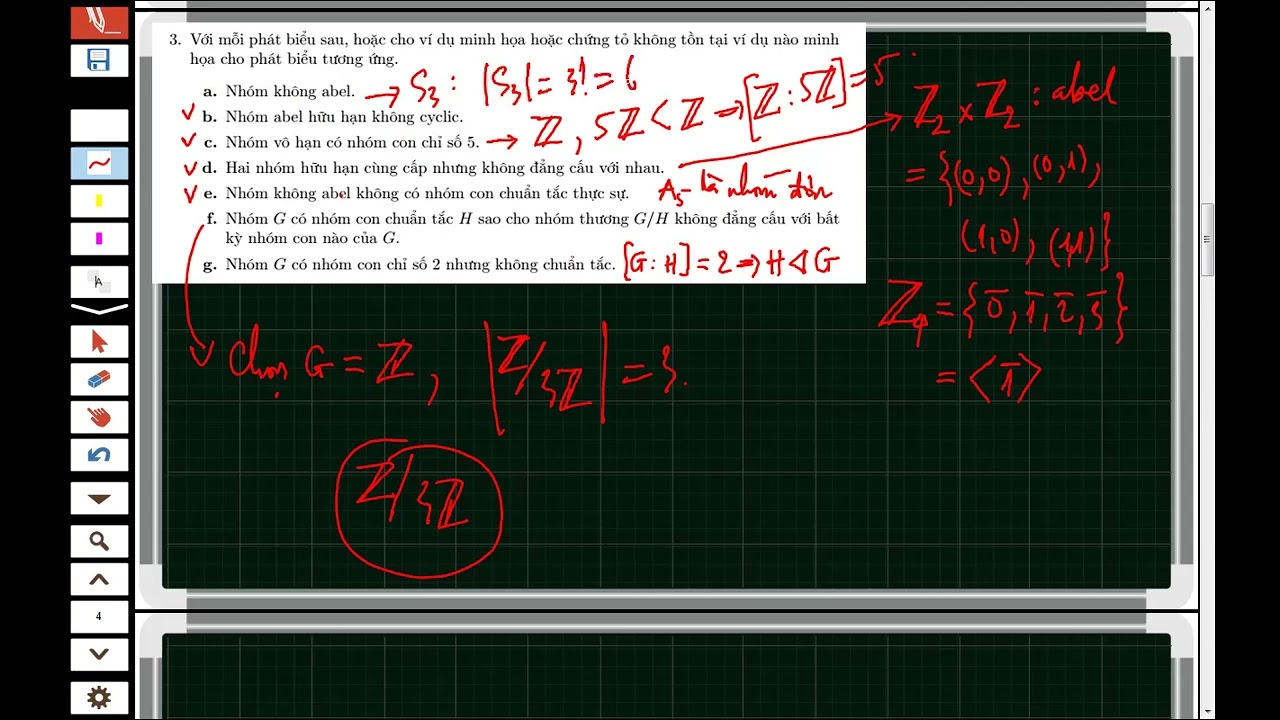 3. Với mỗi phát biểu sau, hoặc cho ví dụ minh họa hoặc chứng tỏ không tồn tại ví dụ nào minh
họa cho phát biểu tương ứng.
a. Nhóm không abel. → S₃ : |S₃| = 3! = 6
b. Nhóm abel hữu hạn không cyclic.
c. Nhóm vô hạn có nhóm con chỉ số 5. → ℤ, 5ℤ < ℤ ⇒ [ℤ : 5ℤ] = 5
d. Hai nhóm hữu hạn cùng cấp nhưng không đẳng cấu với nhau.
e. Nhóm không abel không có nhóm con chuẩn tắc thực sự. A₅ - là nhóm đơn
f. Nhóm G có nhóm con chuẩn tắc H sao cho nhóm thương G/H không đẳng cấu với bất
kỳ nhóm con nào của G.
g. Nhóm G có nhóm con chỉ số 2 nhưng không chuẩn tắc. [G : H] = 2 ⇒ H ⊲ G
ℤ₂ × ℤ₂ : abel
= {(0,0), (0,1),
(1,0), (1,1)}
ℤ₄ = {0̄, 1̄, 2̄, 3̄}
= ⟨1̄⟩
Chọn G = ℤ, |ℤ/3ℤ| = 3.
ℤ/3ℤ
A
4